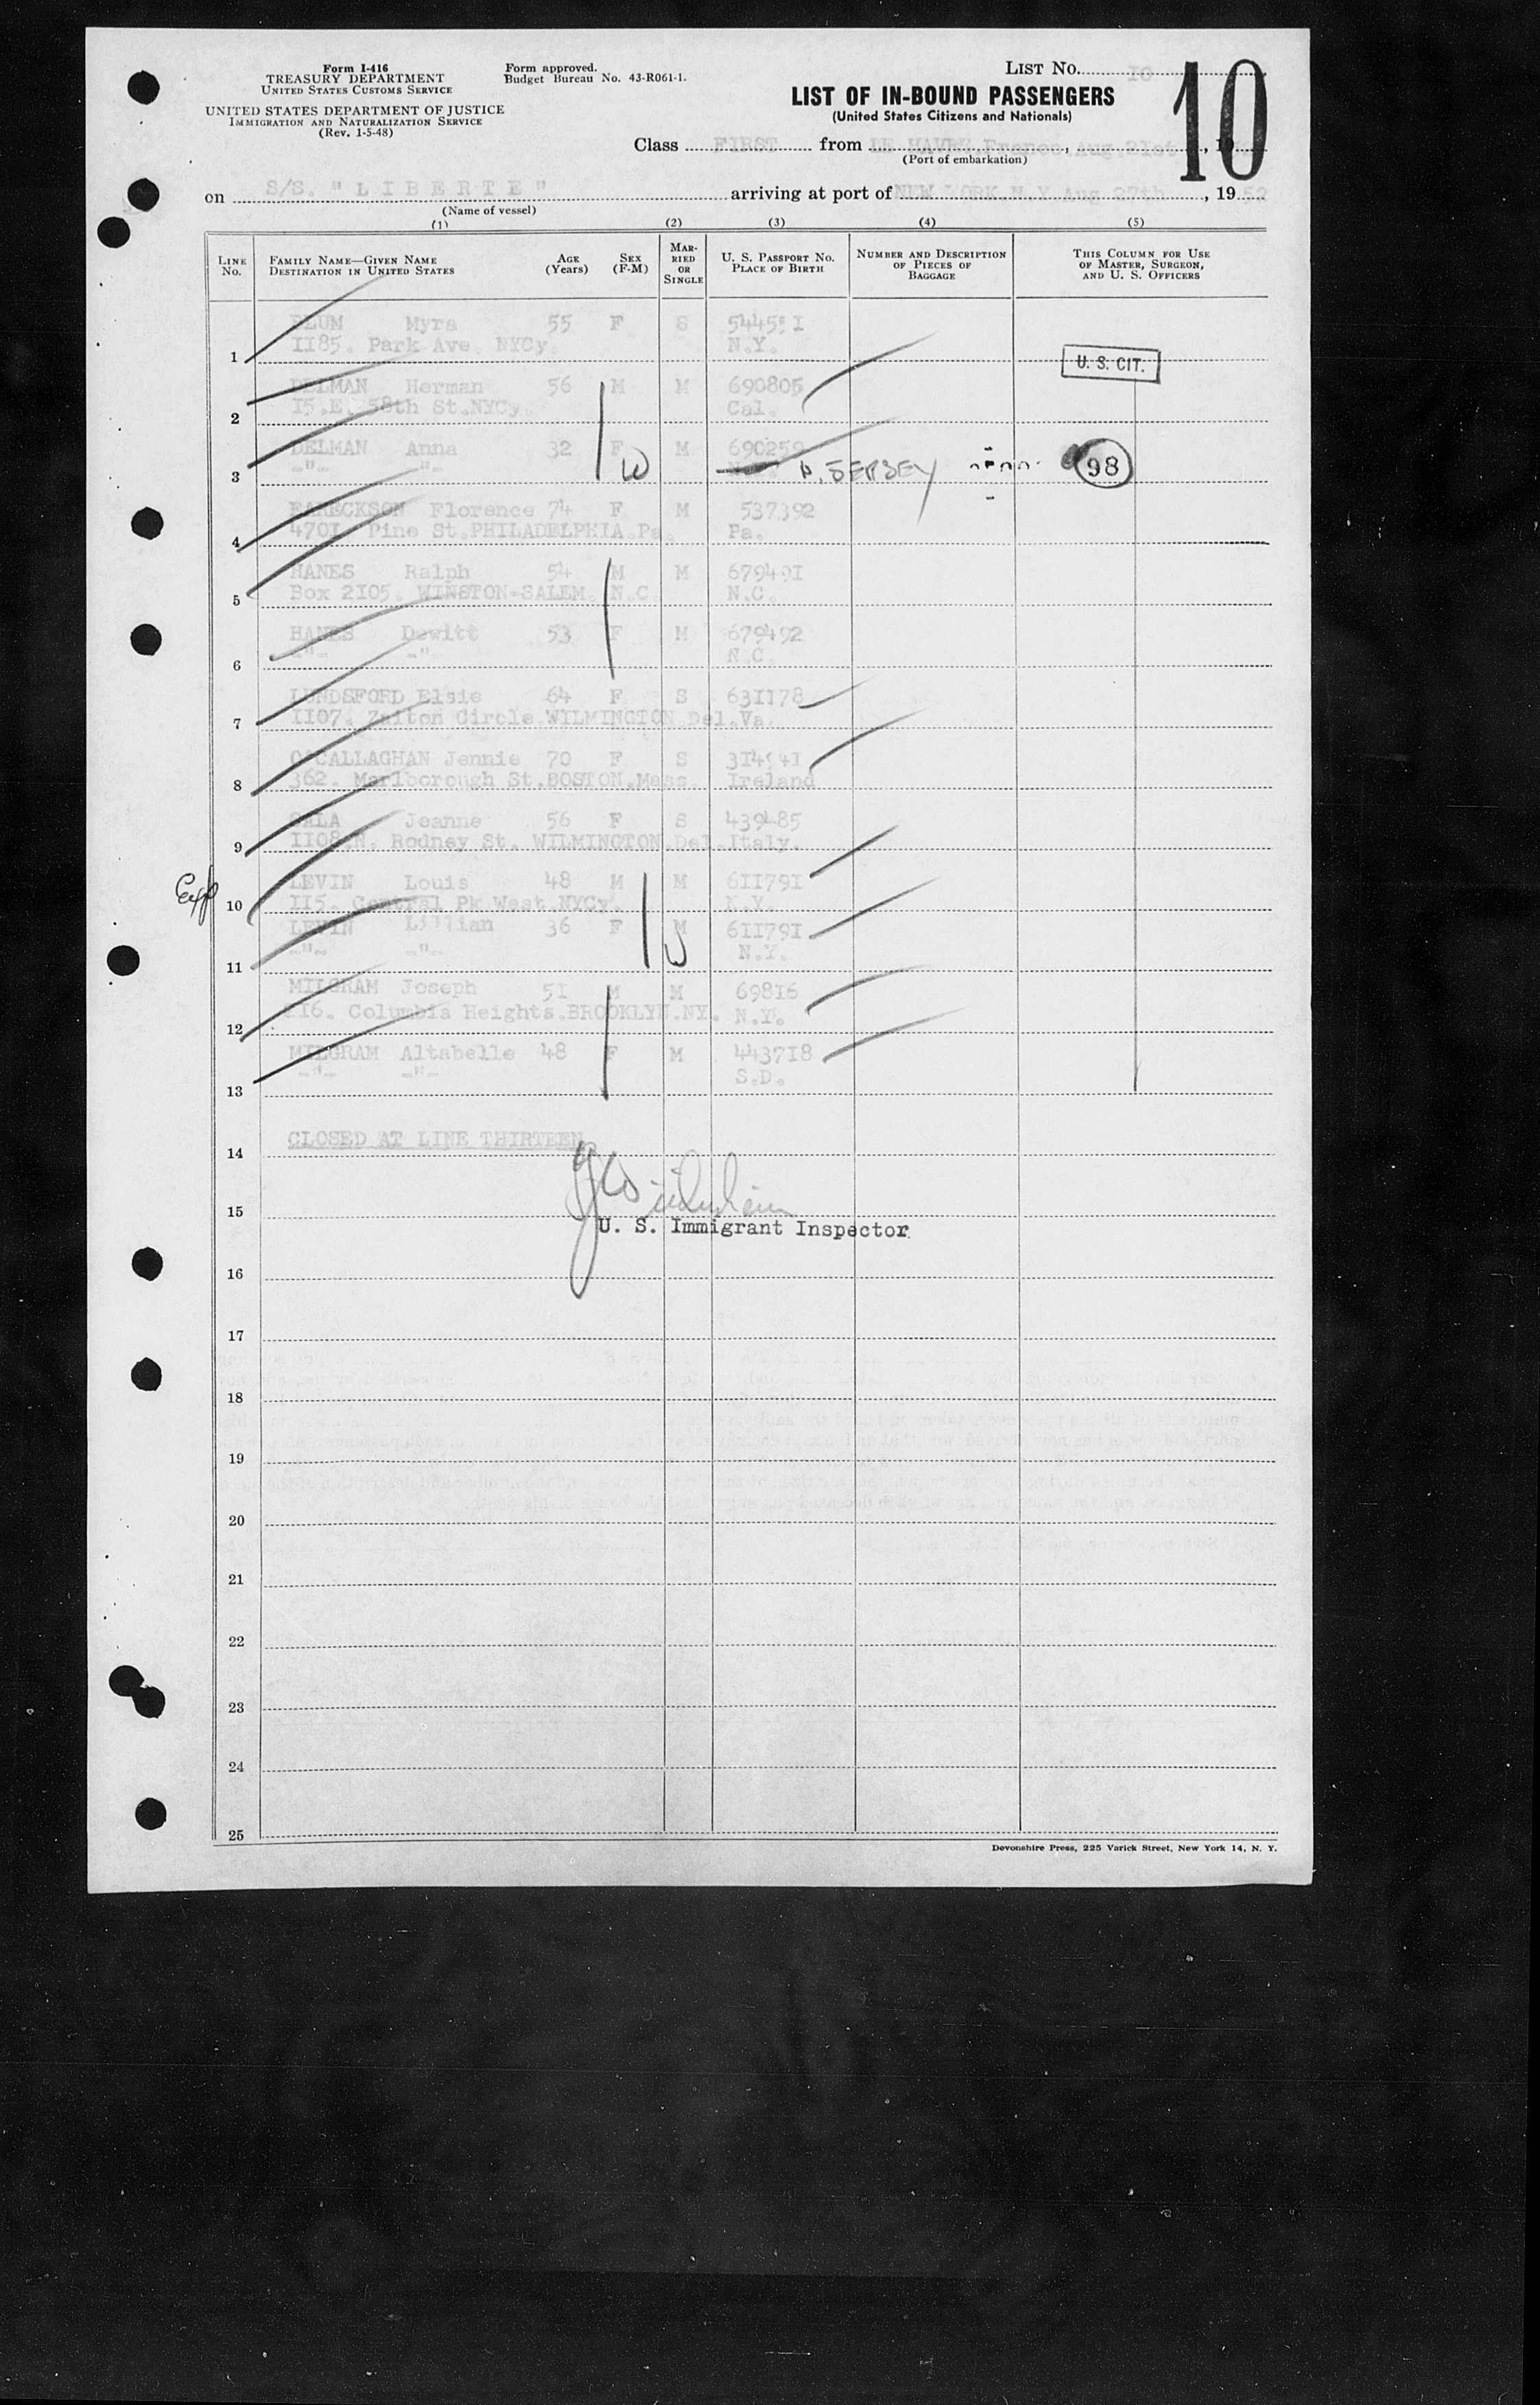 Form I-416
TREASURY DEPARTMENT
UNITED STATES CUSTOMS SERVICE
UNITED STATES DEPARTMENT OF JUSTICE
IMMIGRATION AND NATURALIZATION SERVICE
(Rev. 1-5-48)
Form approved.
Budget Bureau No. 43-R061-1.
LIST No. 10
10
LIST OF IN-BOUND PASSENGERS
(United States Citizens and Nationals)
Class FIRST from LE HAVRE, France, Aug. 21st, 19
(Port of embarkation)
on S/S. "LIBERTE" arriving at port of NEW YORK. N.Y. Aug 27th, 1952
(Name of vessel)
(1) (2) (3) (4) (5)
LINE No. FAMILY NAME—GIVEN NAME DESTINATION IN UNITED STATES AGE (Years) SEX (F-M) MARRIED OR SINGLE U. S. PASSPORT No. PLACE OF BIRTH NUMBER AND DESCRIPTION OF PIECES OF BAGGAGE THIS COLUMN FOR USE OF MASTER, SURGEON, AND U. S. OFFICERS
BLUM Myra 55 F S
1 1185. Park Ave. NYCy. N.Y. U. S. CIT.
DELMAN Herman 56 M M 690805
2 15.E. 58th St.NYCy. Cal.
DELMAN Anna 32 F M 690259
3 -"- -"- W N. JERSEY 98
EARECKSON Florence 74 F M 537392
4 4701. Pine St.PHILADELPHIA.Pa. Pa.
HANES Ralph 54 M M 679491
5 Box 2105. WINSTON-SALEM. N.C. N.C.
HANES Dewitt 53 F M 679492
6 -"- -"- N.C.
LUNDSFORD Elsie 64 F S 631178
7 1107. Circle.WILMINGTON Del.Va.
O'CALLAGHAN Jennie 70 F S
8 362. Marlborough St.BOSTON.Mass. Ireland
SALA Jeanne 56 F S 439485
9 1108.N. Rodney St. WILMINGTON.Del.Italy.
LEVIN Louis 48 M M 611791
10 115. Central Pk West.NYCy. N.Y.
LEVIN Lillian 36 F M 611791
11 -"- -"- W N.Y.
MILGRAM Joseph 51 M M 69816
12 216. Columbia Heights.BROOKLYN.NY. N.Y.
MILGRAM Altabelle 48 F M 443718
13 -"- -"- S.D.
14 CLOSED AT LINE THIRTEEN
15
U. S. Immigrant Inspector
16
17
18
19
20
21
22
23
24
25
Devonshire Press, 225 Varick Street, New York 14, N. Y.